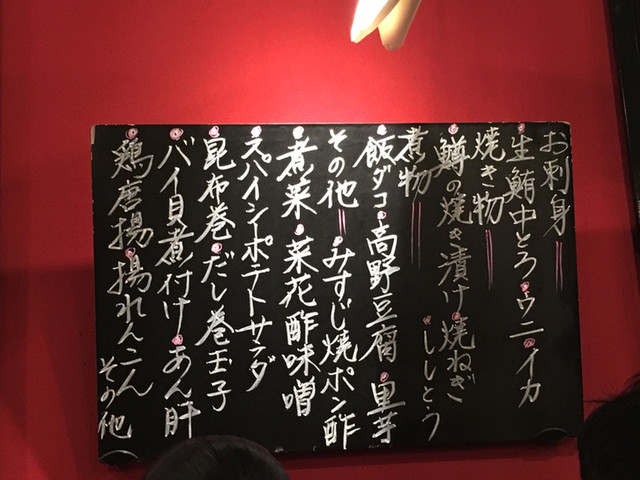 お刺身
生鮪中とろ・ウニ・イカ
焼き物
鱒の焼き漬け・焼ねぎ
・ししとう
煮物
飯ダコ・高野豆腐・里芋
その他・みすじ焼ポン酢
煮菜・菜花酢味噌
スパイシーポテトサラダ
昆布巻・だし巻玉子
バイ貝煮付け・あん肝
鶏唐揚・揚れんこん
その他